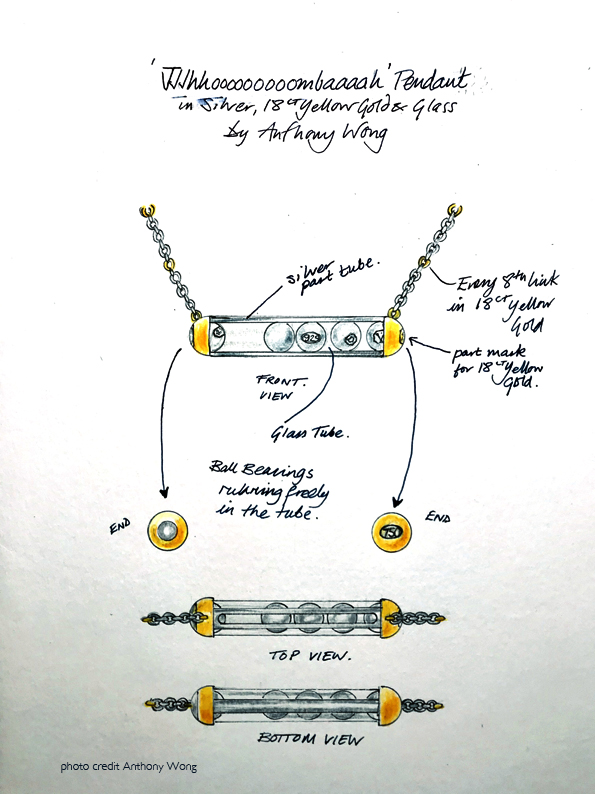 'JJJhhooooooooombaaaah' Pendant
in Silver, 18ct Yellow Gold & Glass
by Anthony Wong
silver
part tube.
Every 8th link
in 18ct Yellow
Gold
925
part mark
for 18ct Yellow
Gold.
FRONT.
VIEW
Glass Tube.
Ball Bearings
running freely
in the tube.
END
750
END
TOP VIEW.
BOTTOM VIEW
photo credit Anthony Wong